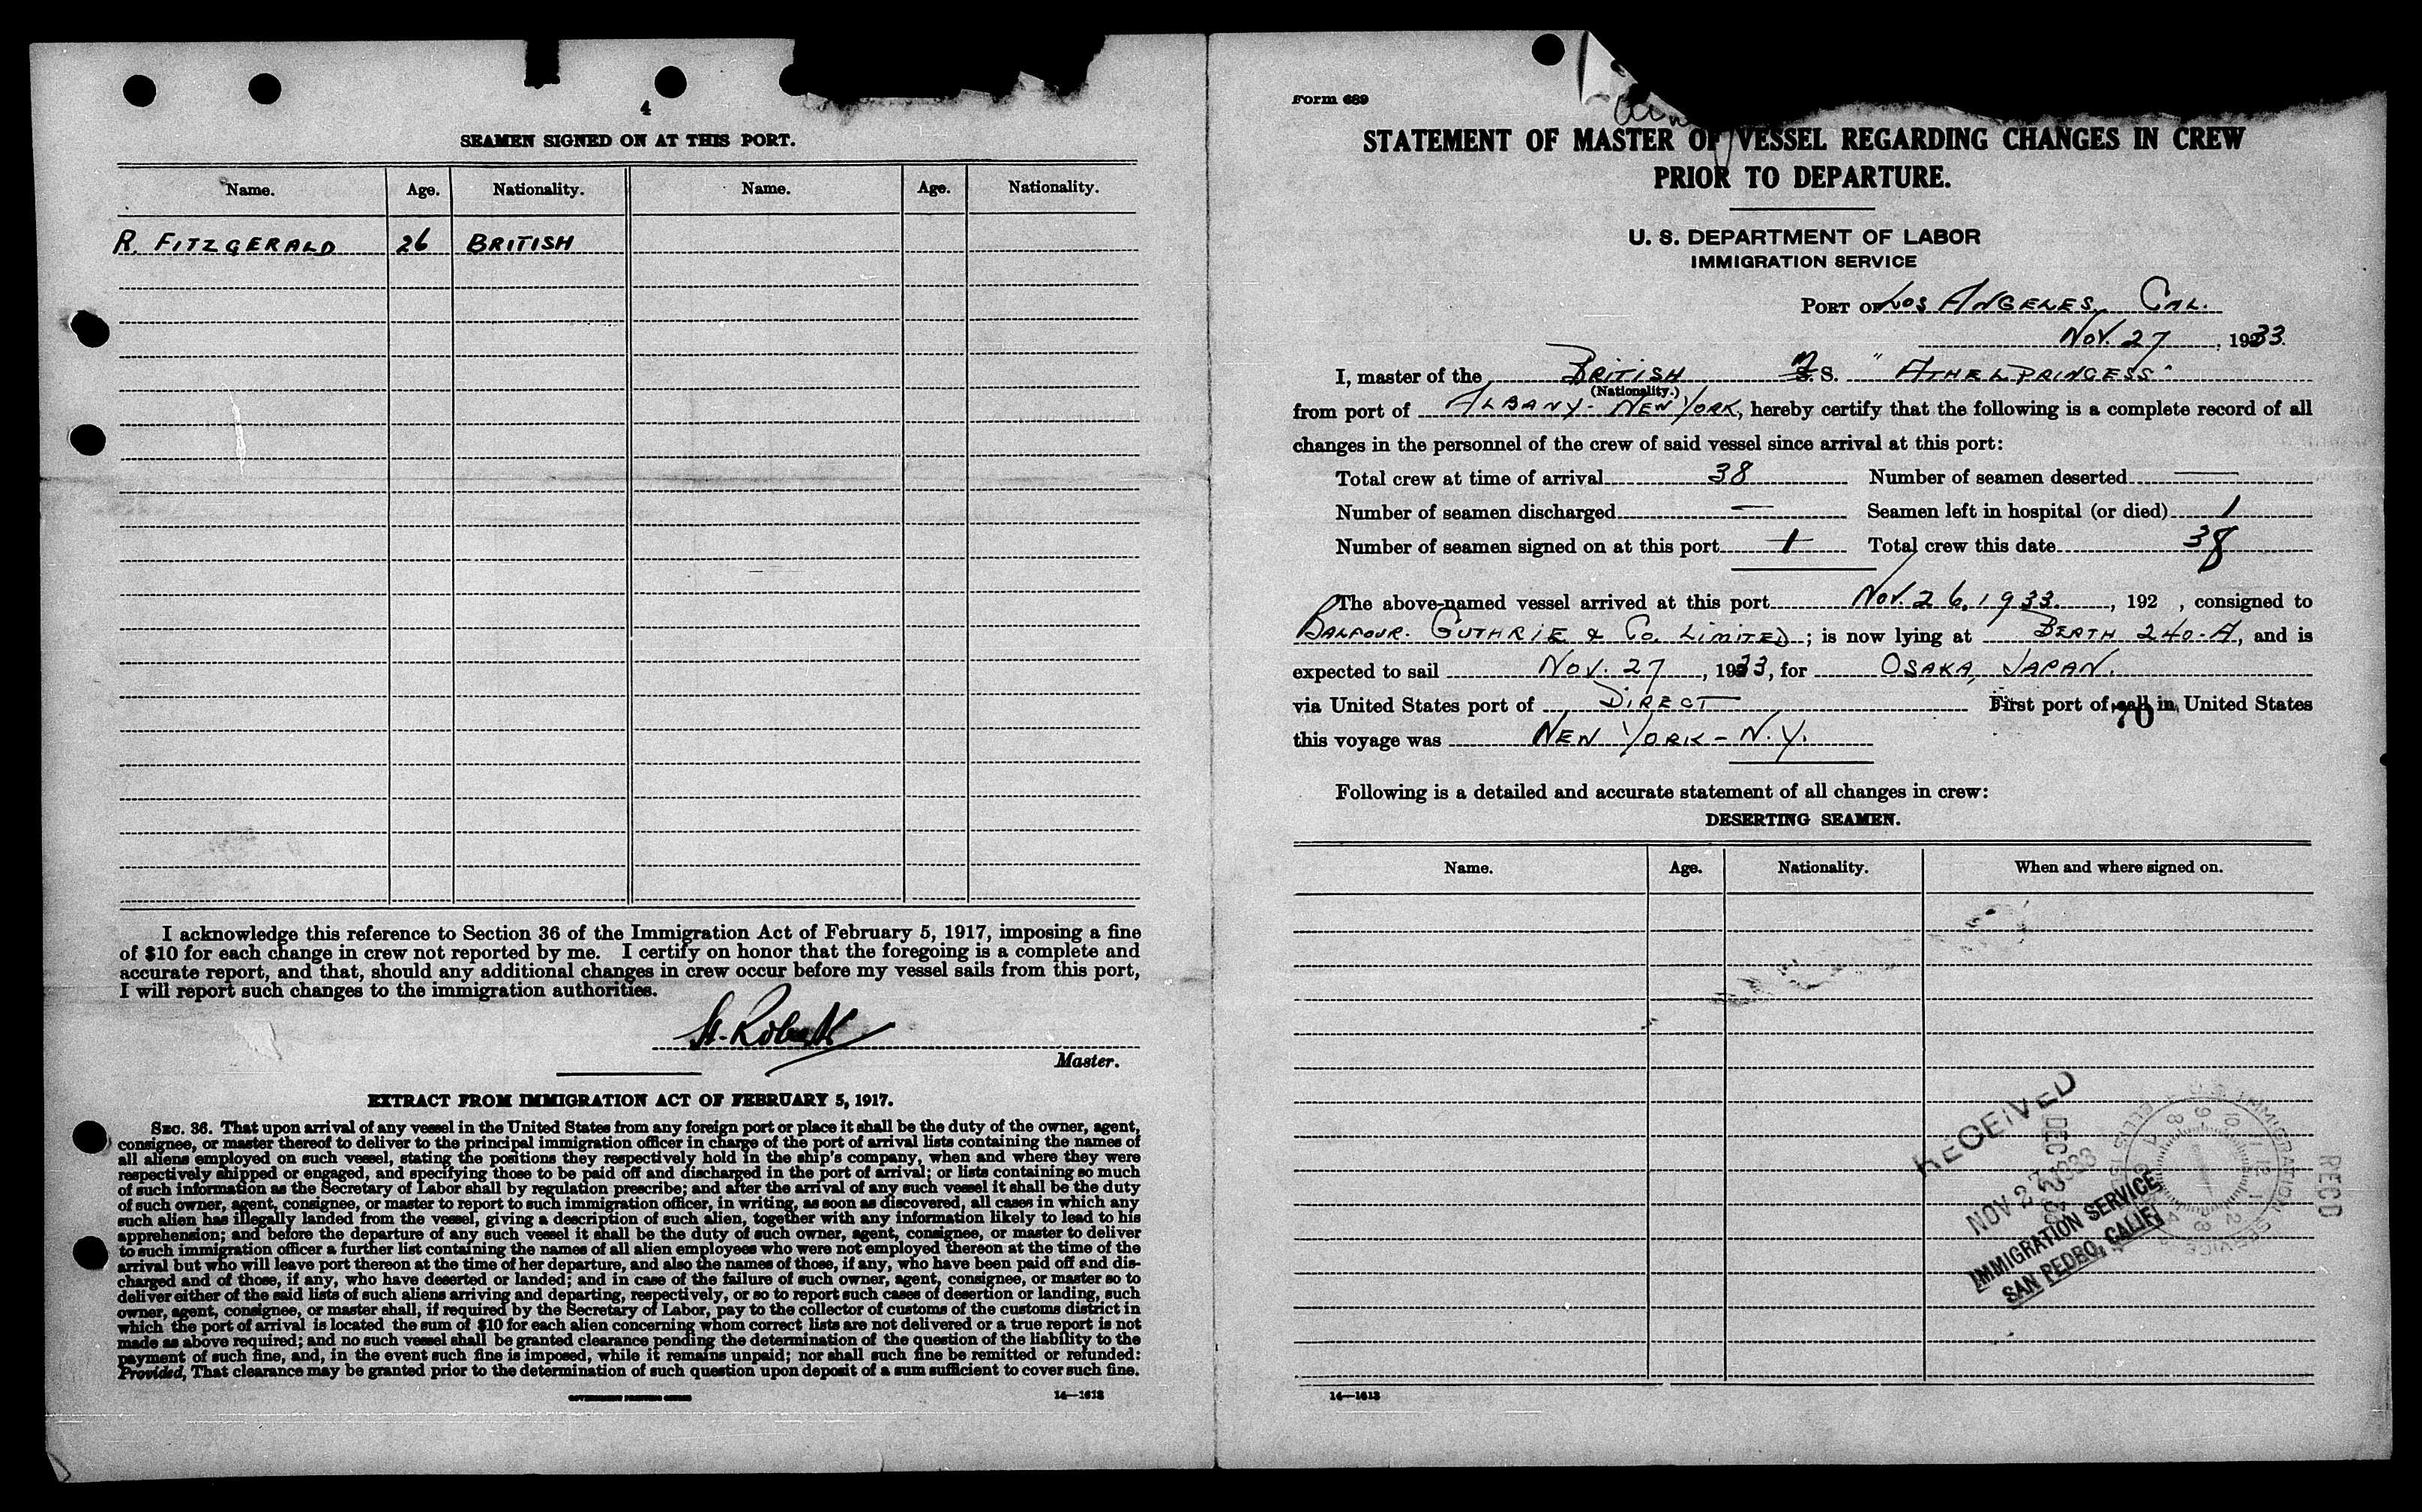 4
SEAMEN SIGNED ON AT THIS PORT.
Name. Age. Nationality. Name. Age. Nationality.
R. FITZGERALD 26 BRITISH
I acknowledge this reference to Section 36 of the Immigration Act of February 5, 1917, imposing a fine
of $10 for each change in crew not reported by me. I certify on honor that the foregoing is a complete and
accurate report, and that, should any additional changes in crew occur before my vessel sails from this port,
I will report such changes to the immigration authorities.
Master.
EXTRACT FROM IMMIGRATION ACT OF FEBRUARY 5, 1917.
SEC. 36. That upon arrival of any vessel in the United States from any foreign port or place it shall be the duty of the owner, agent,
consignee, or master thereof to deliver to the principal immigration officer in charge of the port of arrival lists containing the names of
all aliens employed on such vessel, stating the positions they respectively hold in the ship's company, when and where they were
respectively shipped or engaged, and specifying those to be paid off and discharged in the port of arrival; or lists containing so much
of such information as the Secretary of Labor shall by regulation prescribe; and after the arrival of any such vessel it shall be the duty
of such owner, agent, consignee, or master to report to such immigration officer, in writing, as soon as discovered, all cases in which any
such alien has illegally landed from the vessel, giving a description of such alien, together with any information likely to lead to his
apprehension; and before the departure of any such vessel it shall be the duty of such owner, agent, consignee, or master to deliver
to such immigration officer a further list containing the names of all alien employees who were not employed thereon at the time of the
arrival but who will leave port thereon at the time of her departure, and also the names of those, if any, who have been paid off and dis-
charged and of those, if any, who have deserted or landed; and in case of the failure of such owner, agent, consignee, or master so to
deliver either of the said lists of such aliens arriving and departing, respectively, or so to report such cases of desertion or landing, such
owner, agent, consignee, or master shall, if required by the Secretary of Labor, pay to the collector of customs of the customs district in
which the port of arrival is located the sum of $10 for each alien concerning whom correct lists are not delivered or a true report is not
made as above required; and no such vessel shall be granted clearance pending the determination of the question of the liability to the
payment of such fine, and, in the event such fine is imposed, while it remains unpaid; nor shall such fine be remitted or refunded:
Provided, That clearance may be granted prior to the determination of such question upon deposit of a sum sufficient to cover such fine.
GOVERNMENT PRINTING OFFICE 14—1613
Form 689
STATEMENT OF MASTER OF VESSEL REGARDING CHANGES IN CREW
PRIOR TO DEPARTURE.
U. S. DEPARTMENT OF LABOR
IMMIGRATION SERVICE
PORT OF LOS ANGELES, CAL.
NOV. 27, 1933.
I, master of the BRITISH M.S. "ATHELPRINCESS"
(Nationality.)
from port of ALBANY - NEW YORK, hereby certify that the following is a complete record of all
changes in the personnel of the crew of said vessel since arrival at this port:
Total crew at time of arrival 38 Number of seamen deserted —
Number of seamen discharged — Seamen left in hospital (or died) 1
Number of seamen signed on at this port 1 Total crew this date 38
The above-named vessel arrived at this port NOV. 26, 1933., 192 , consigned to
BALFOUR. GUTHRIE & CO. LIMITED; is now lying at BERTH 240-A, and is
expected to sail NOV. 27, 1933, for OSAKA, JAPAN.
via United States port of DIRECT First port of call in United States
70
this voyage was NEW YORK - N.Y.
Following is a detailed and accurate statement of all changes in crew:
DESERTING SEAMEN.
Name. Age. Nationality. When and where signed on.
RECEIVED
NOV 27 1933
IMMIGRATION SERVICE
SAN PEDRO, CALIF.
REC'D
14—1613